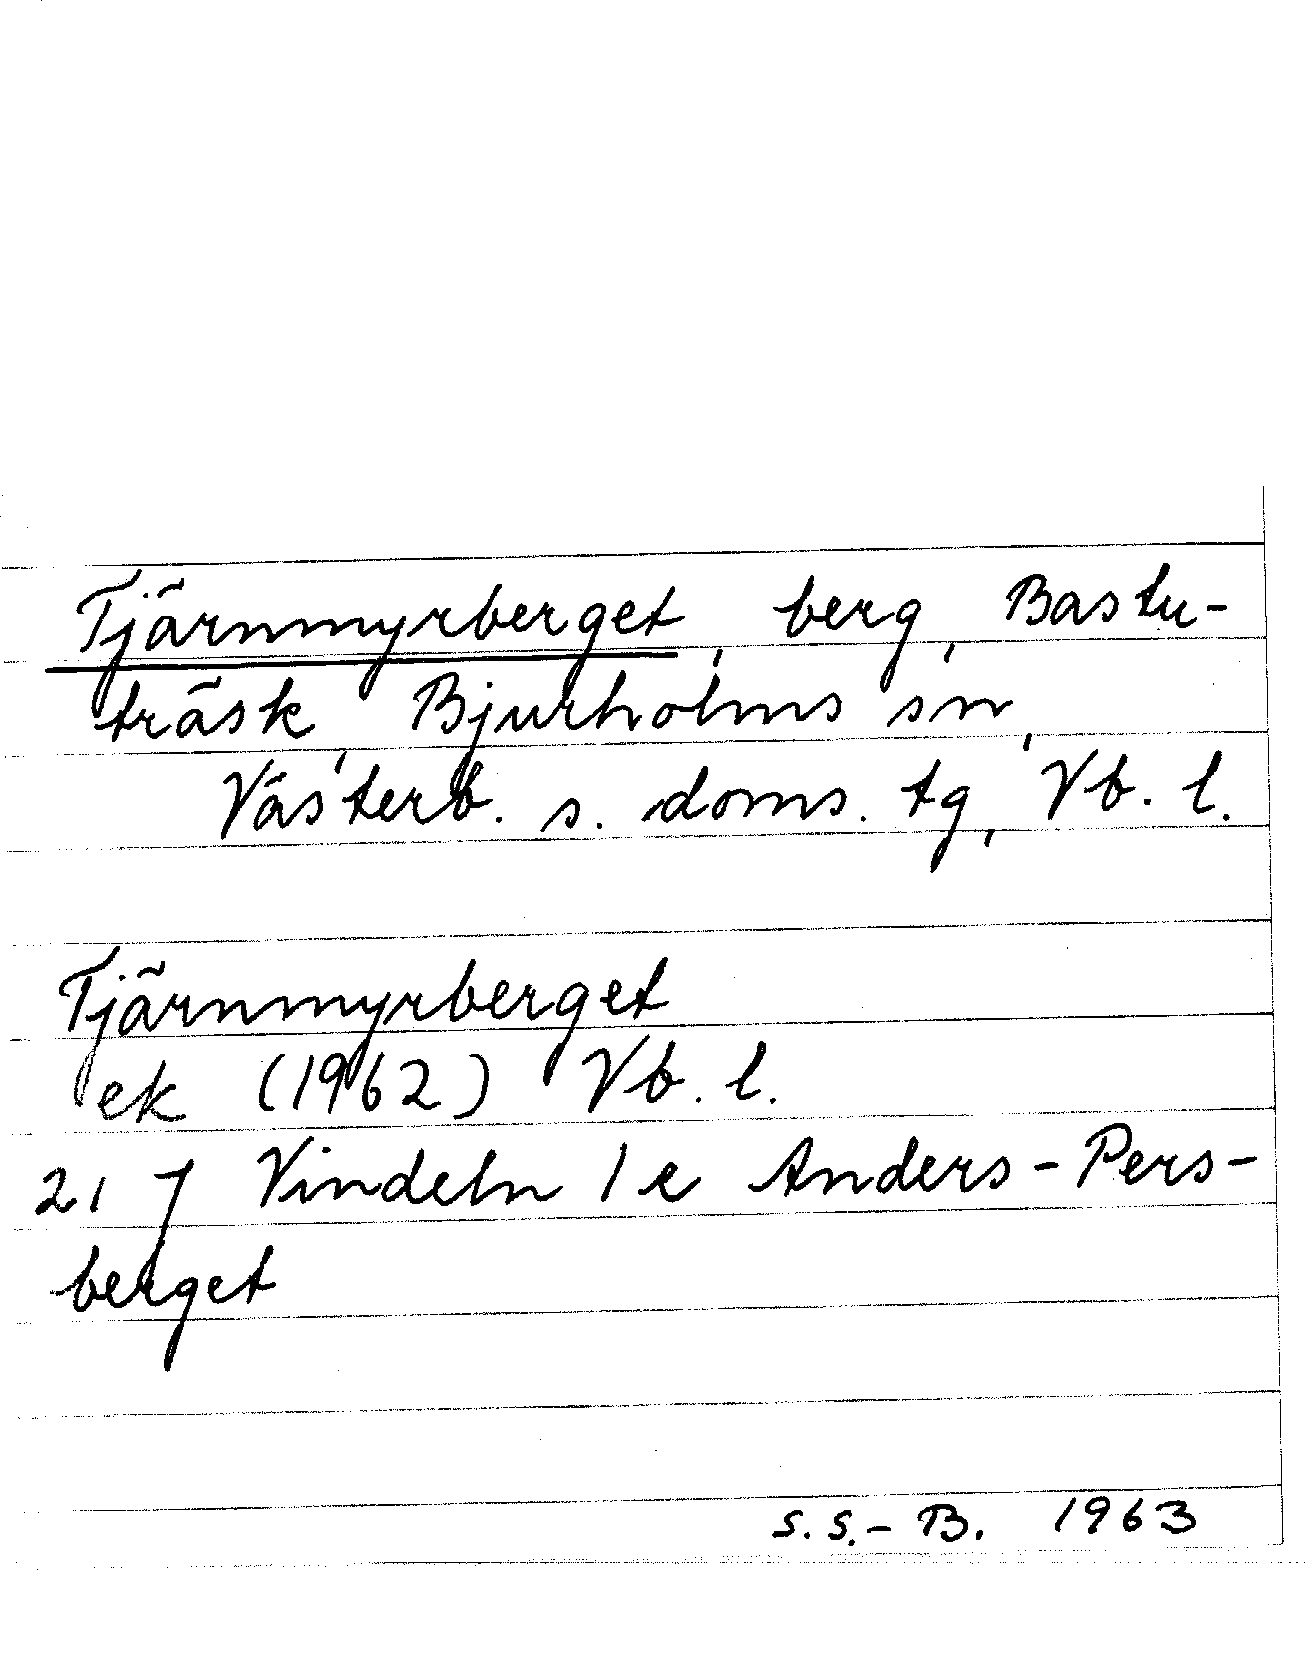 Tjärnmyrberget, berg, Bastu-
träsk, Bjurholms sn,
Västerb. s. doms. tg, Vb. l.
Tjärnmyrberget
ek (1962) Vb. l.
21 J Vindeln 1e Anders-Pers-
berget
S.S.-B. 1963